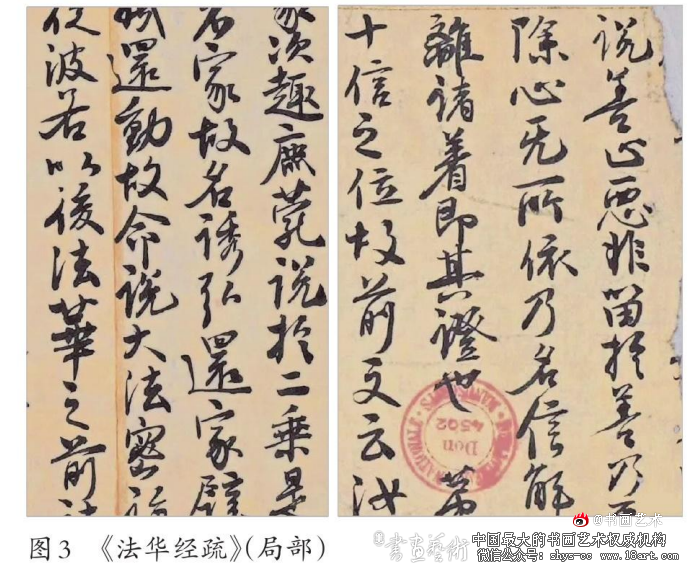 次趣鹿苑说於二乘是
名家故名诱引還家譬
還動故命说大法密
波若以後法華之前
说善止恶非留於善乃
除心无所依乃名信解
離諸着即其證也
十信之位故前文云汝
Don
4502
图3 《法华经疏》(局部)
@书画艺术
书画艺術
中国最大的书画艺术权威机构
微信公众号: shys-cc www.18art.com